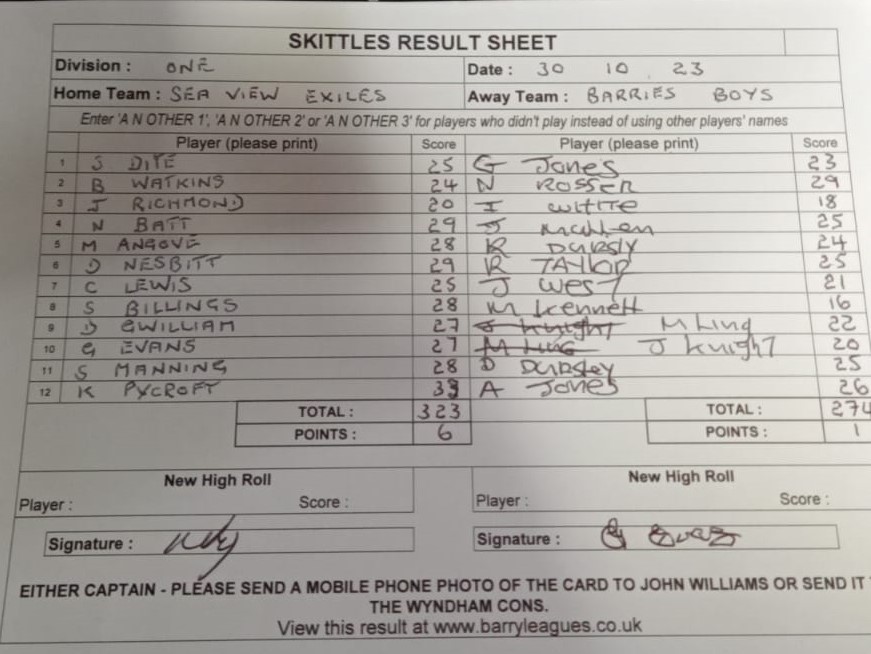 SKITTLES RESULT SHEET
Division : ONE Date : 30 10 23
Home Team : SEA VIEW EXILES Away Team : BARRIES BOYS
Enter 'A N OTHER 1', 'A N OTHER 2' or 'A N OTHER 3' for players who didn't play instead of using other players' names
Player (please print) Score Player (please print) Score
1 S DITE 25 G Jones 23
2 B WATKINS 24 N ROSSER 29
3 J RICHMOND 20 I WHITE 18
4 N BATT 29 J 25
5 M ANGOVE 28 R DURSLY 24
6 D NESBITT 29 R TAYLOR 25
7 C LEWIS 25 J WEST 21
8 S BILLINGS 28 M Kennett 16
9 D GWILLIAM 27 J Knight M Ling 22
10 G EVANS 27 M Ling J Knight 20
11 S MANNING 28 D DURSLEY 25
12 K PYCROFT 33 A Jones 26
TOTAL : 323 TOTAL : 274
POINTS : 6 POINTS : 1
New High Roll New High Roll
Player : Score : Player : Score :
Signature : Signature :
EITHER CAPTAIN - PLEASE SEND A MOBILE PHONE PHOTO OF THE CARD TO JOHN WILLIAMS OR SEND IT
THE WYNDHAM CONS.
View this result at www.barryleagues.co.uk